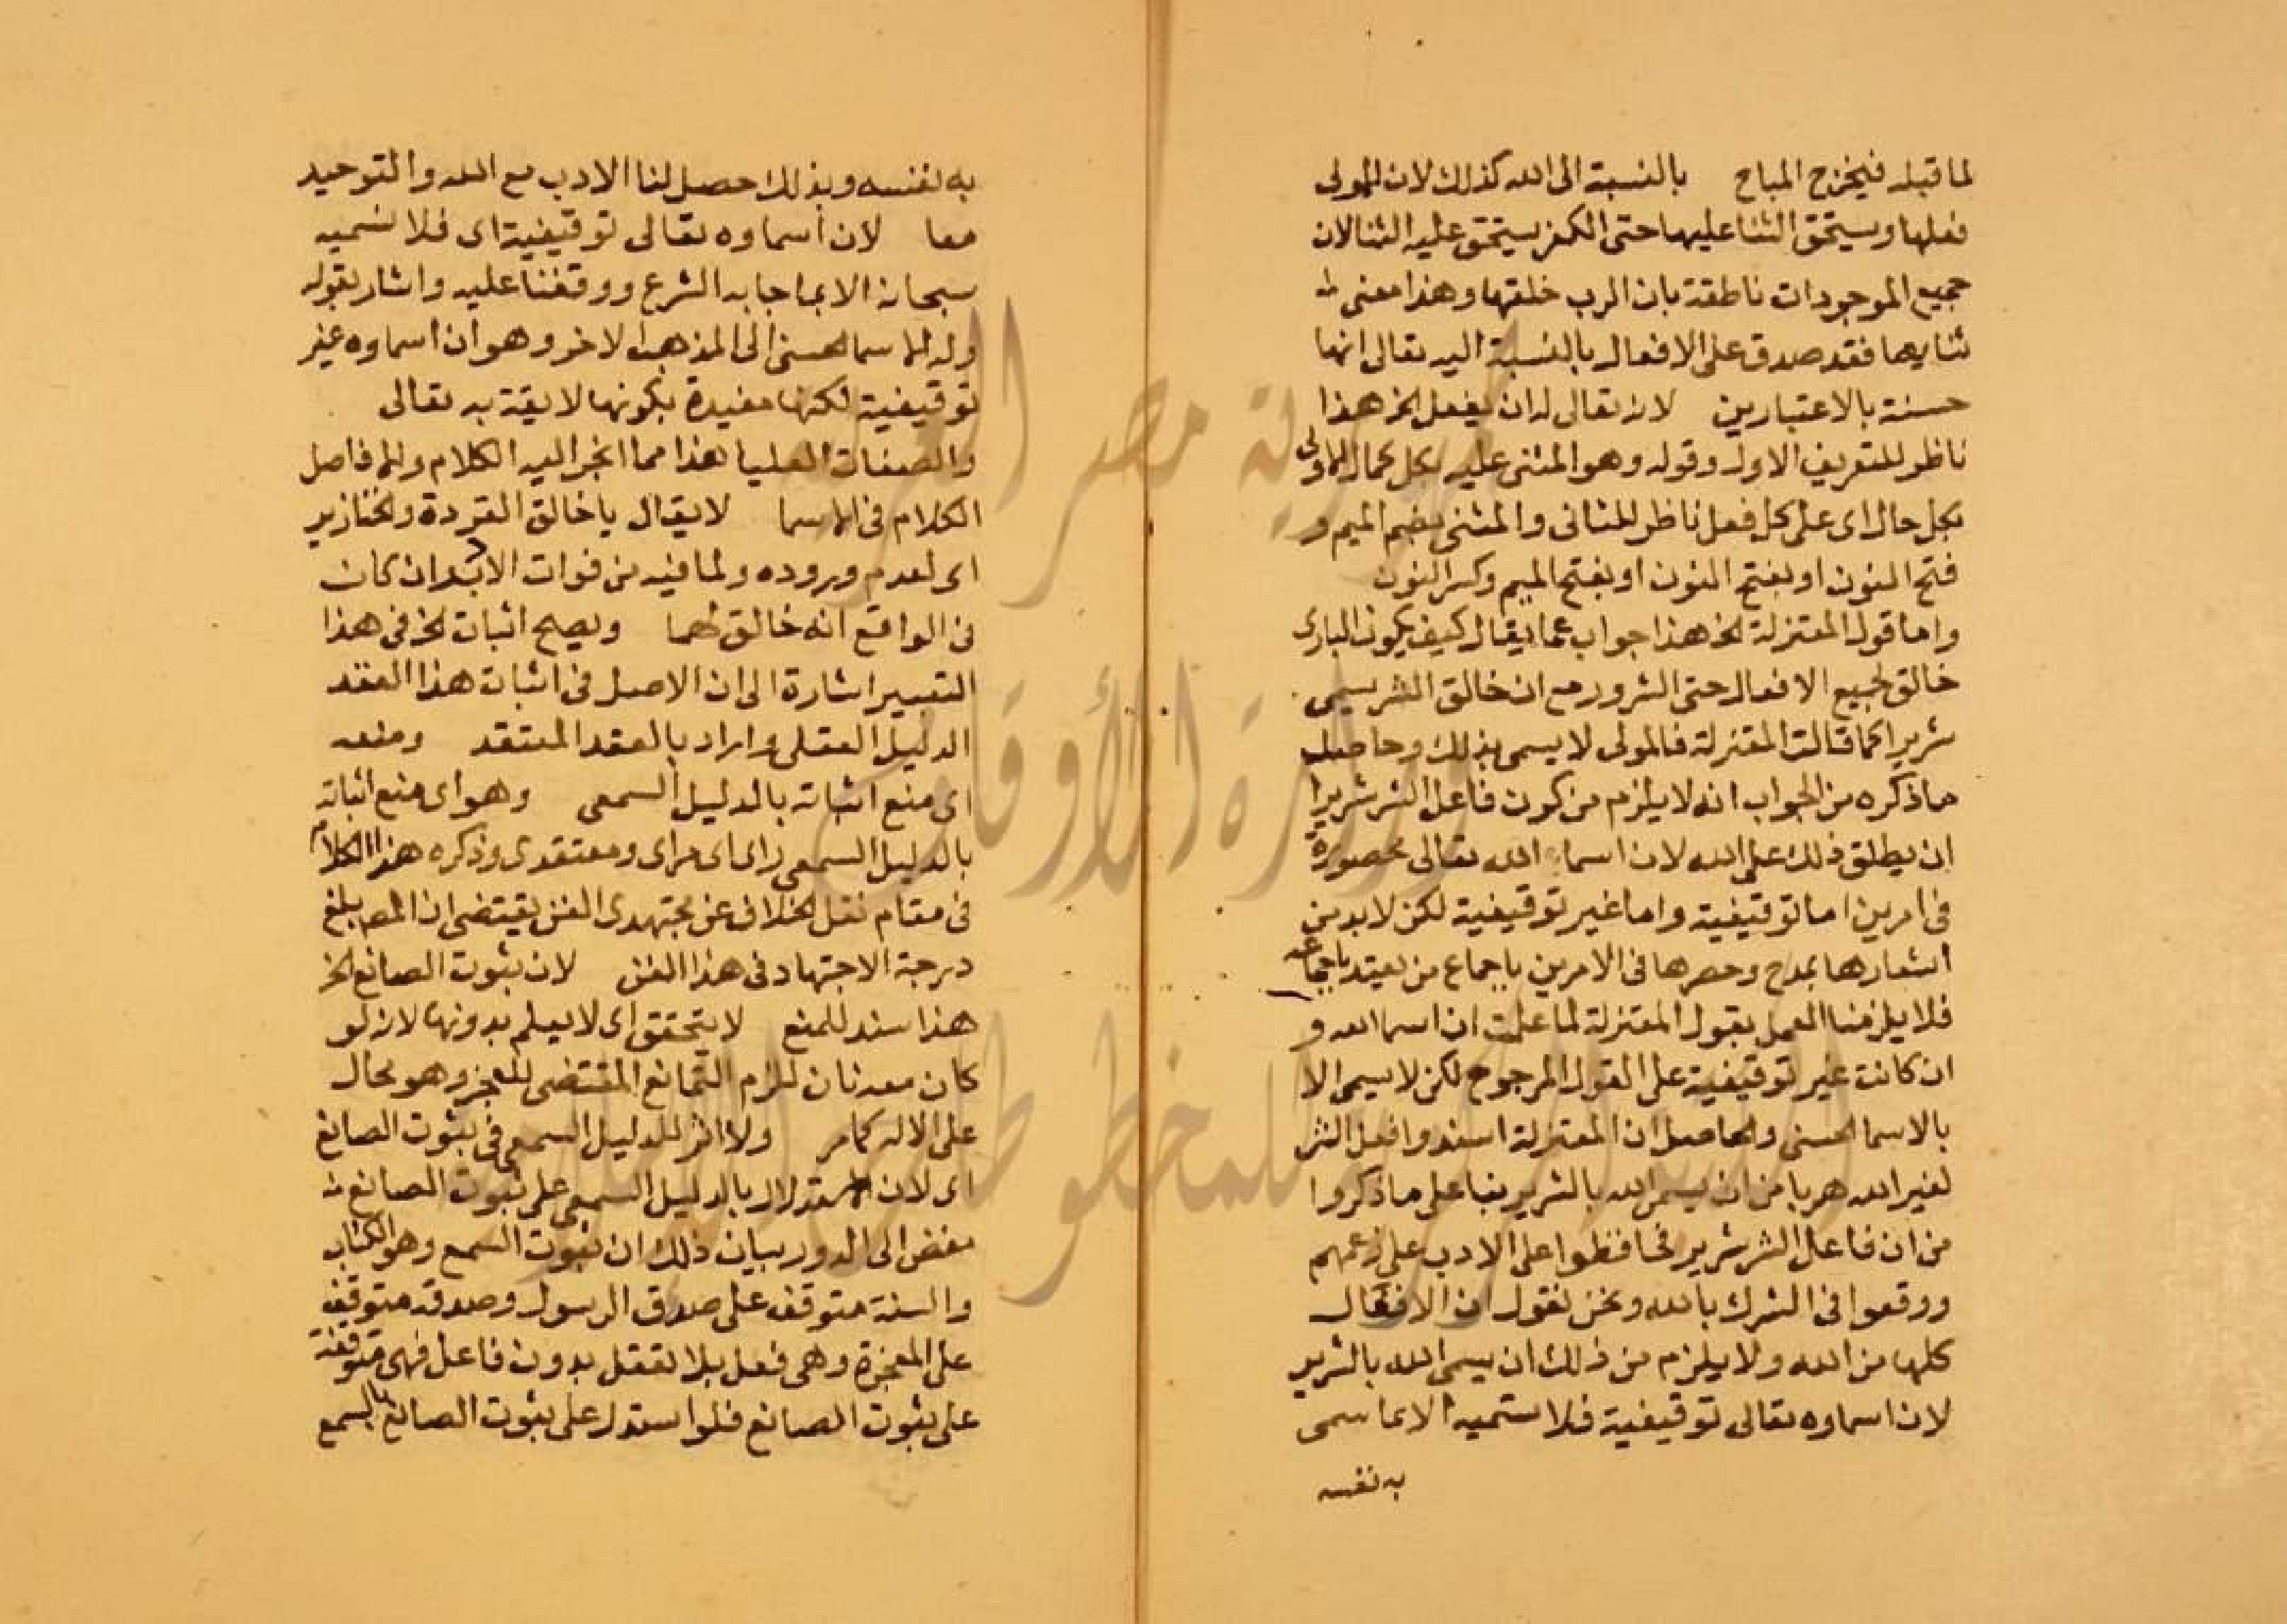 لما قبله فيخرج المباح بالنسبة الى الله كذلك لان المولى
فعلها ويستحق الثنا عليها حتى الكفر يستحق عليه الثنا لان
جميع الموجودات ناطقة بان الرب خلقها وهذا معنى
ثنايها فقد صدق على الافعال بالنسبة اليه تعالى انها
حسنة بالاعتبارين لانه تعالى له ان يفعل الخ هذا
ناظر للتعريف الاول وقوله وهو المثنى عليه بكل كمال الاولى
بكل حال اى على كل فعل ناظر للثانى والمثنى بضم الميم و
فتح النون او بفتح النون او بفتح الميم وكسر النون
واما قول المعتزلة الخ هذا جواب عما يقال كيف يكون البارى
خالق لجميع الافعال حتى الشرور مع ان خالق الشر يسمى
شريرا كما قالت المعتزلة فالمولى لا يسمى بذلك وحاصل
ما ذكره من الجواب انه لا يلزم من كون فاعل الشر شريرا
ان يطلق ذلك على الله لان اسماء الله تعالى محصورة
فى امرين اما توقيفية واما غير توقيفية لكن لابد من
اشعارها بمدح وحصرها فى الامرين باجماع من يعتد باجماعه
فلا يلزمنا العمل بقول المعتزلة لما علمت ان اسما الله و
ان كانت غير توقيفية على القول المرجوح لكن لا يسمى الا
بالاسما الحسنى والحاصل ان المعتزلة اسندوا فعل الشر
لغير الله هربا من ان يسمى الله بالشرير بنا على ما ذكروا
من ان فاعل الشر شرير فحافظوا على الادب على زعمهم
ووقعوا فى الشرك بالله ونحن نقول ان الافعال
كلها من الله ولا يلزم من ذلك ان يسمى الله بالشرير
لان اسماوه تعالى توقيفية فلا نسميه الا بما سمى
به نفسه
به نفسه وبذلك حصل لنا الادب مع الله والتوحيد
معا لان اسماوه تعالى توقيفية اى فلا نسميه
سبحانه الا بما جا به الشرع ووقفنا عليه واشار بقوله
وله الاسما الحسنى الى المذهب الاخر وهو ان اسماوه غير
توقيفية لكنها مفيدة بكونها لايقة به تعالى
والصفات العليا هذا مما انجر اليه الكلام والا فاصل
الكلام فى الاسما لا يقال يا خالق القردة والخنازير
اى لعدم وروده ولما فيه من فوات الادب وان كان
فى الواقع انه خالق لهما ويصح اثبات الخ فى هذا
التعبير اشارة الى ان الاصل فى اثبات هذا العقد
الدليل العقلى واراد بالعقد المعتقد ومنعه
اى منع اثباته بالدليل السمعى وهو اى منع اثباته
بالدليل السمعى راى اى مراى ومعتقدى وذكره هذا الكلام
فى مقام نقل الخلاف عن مجتهدى الفن يقتضى ان المص بلغ
درجة الاجتهاد فى هذا الفن لان بثوت الصانع الخ
هذا سند للمنع لا يتحقق اى لا يعلم بدونها لانه لو
كان معه ثان للزم التمانع المقتضى للعجز وهو محال
على الاله كما مر ولا اثر للدليل السمعى فى بثوت الصانع
اى لان الاستدلال بالدليل السمعى على ثبوت الصانع
مفض الى الدور بيان ذلك ان ثبوت السمع وهو الكتاب
والسنة متوقف على صدق الرسول وصدقه متوقف
على المعجزة وهى فعل بلا تعقل بدون فاعل فهى متوقفة
على بثوت الصانع فلو استدل على بثوت الصانع بالسمع